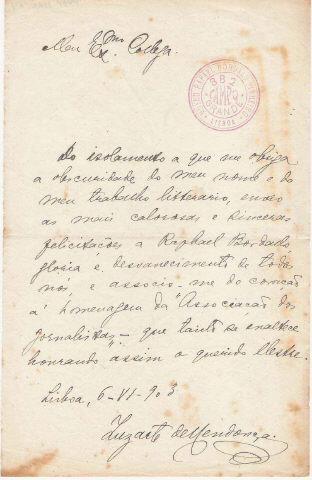 Meu Exmo. Collega.
MUSEU RAFAEL BORDALO PINHEIRO
382
CAMPO
GRANDE
LISBOA
Do isolamento a que me obriga
a obscuridade do meu nome e do
meu trabalho litterario, envio
as mais calorosas e sinceras
felicitações a Raphael Bordallo
gloria e desvanecimento de todos
nós e associo-me do coração
á homenagem da "Associação dos
jornalistas" que tanto se enaltece
honrando assim o querido Mestre.
Lisboa, 6-VI-903
Luzarte de Mendonça.